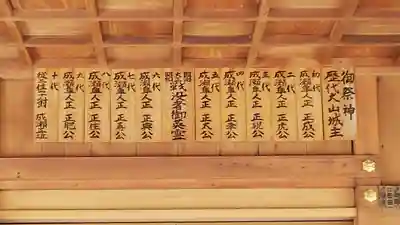 御祭神
歴代犬山城主
初代
成瀬隼人正 正成公
二代
成瀬隼人正 正虎公
三代
成瀬隼人正 正親公
四代
成瀬隼人正 正幸公
五代
成瀬隼人正 正太公
戦没者御英霊
六代
成瀬隼人正 正典公
七代
成瀬隼人正 正壽公
八代
成瀬隼人正 正住公
九代
成瀬隼人正 正肥公
十代
成瀬正雄